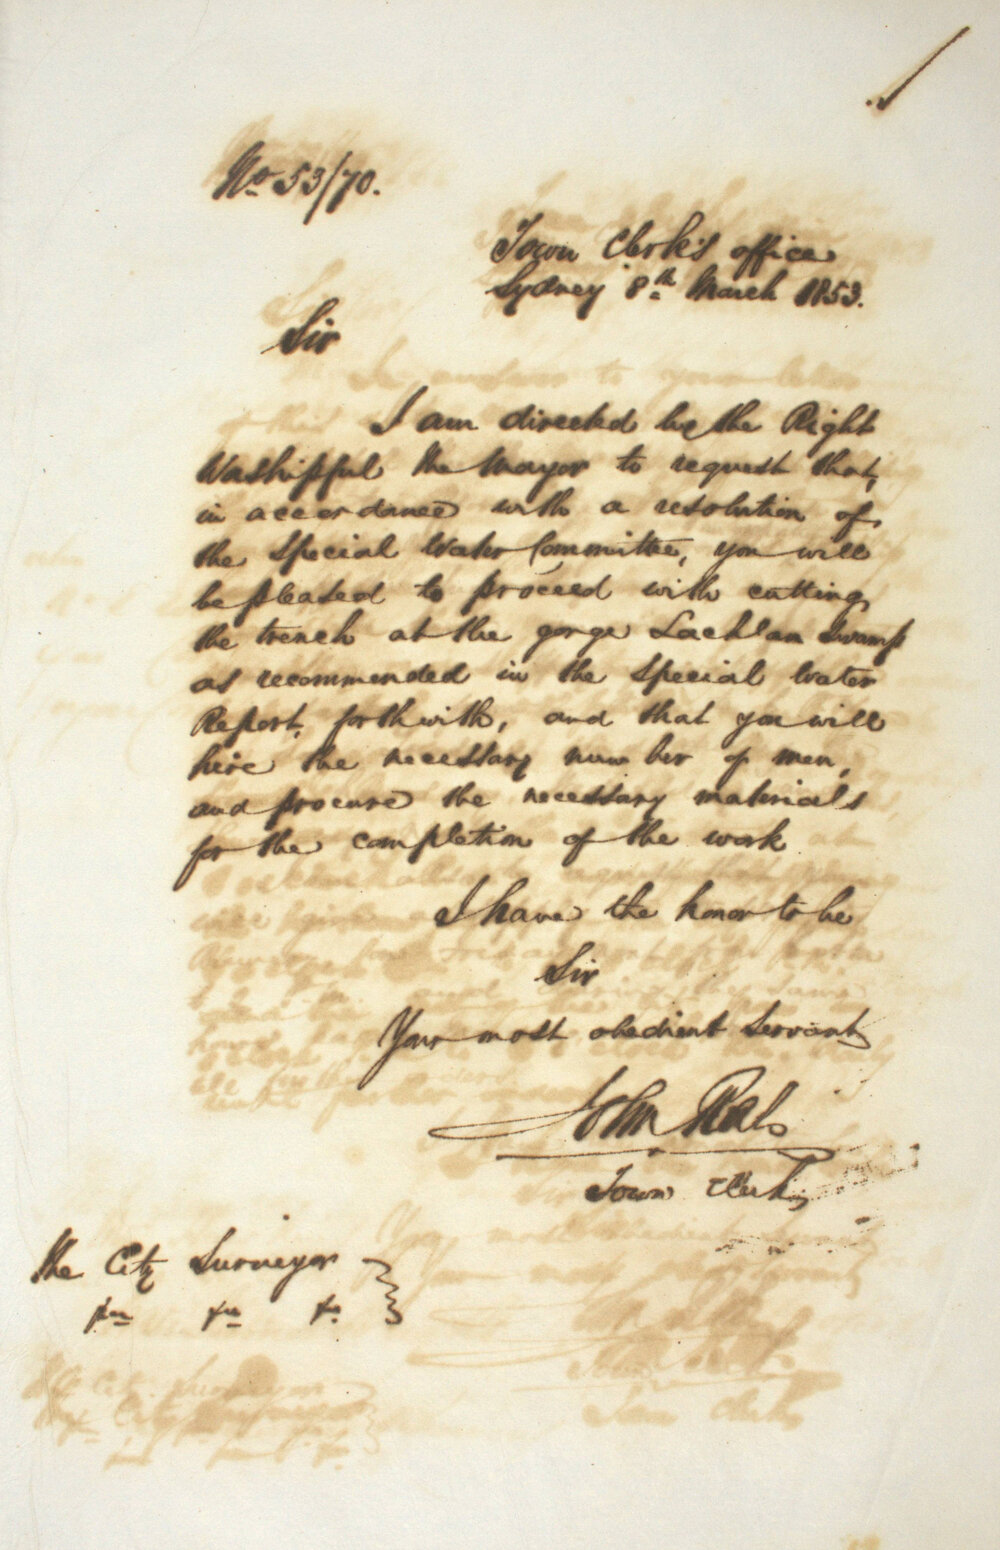 No 53/70.
Town Clerk's office
Sydney 8th March 1853.
Sir
I am directed by the Right
Worshipful the Mayor to request that,
in accordance with a resolution of
the Special Water Committee, you will
be pleased to proceed with cutting
the trench at the gorge Lachlan Swamp
as recommended in the Special Water
Report, forthwith, and that you will
hire the necessary number of men,
and procure the necessary materials
for the completion of the work
I have the honor to be
Sir
Your most obedient Servant
John
Town Clerk
The City Surveyor